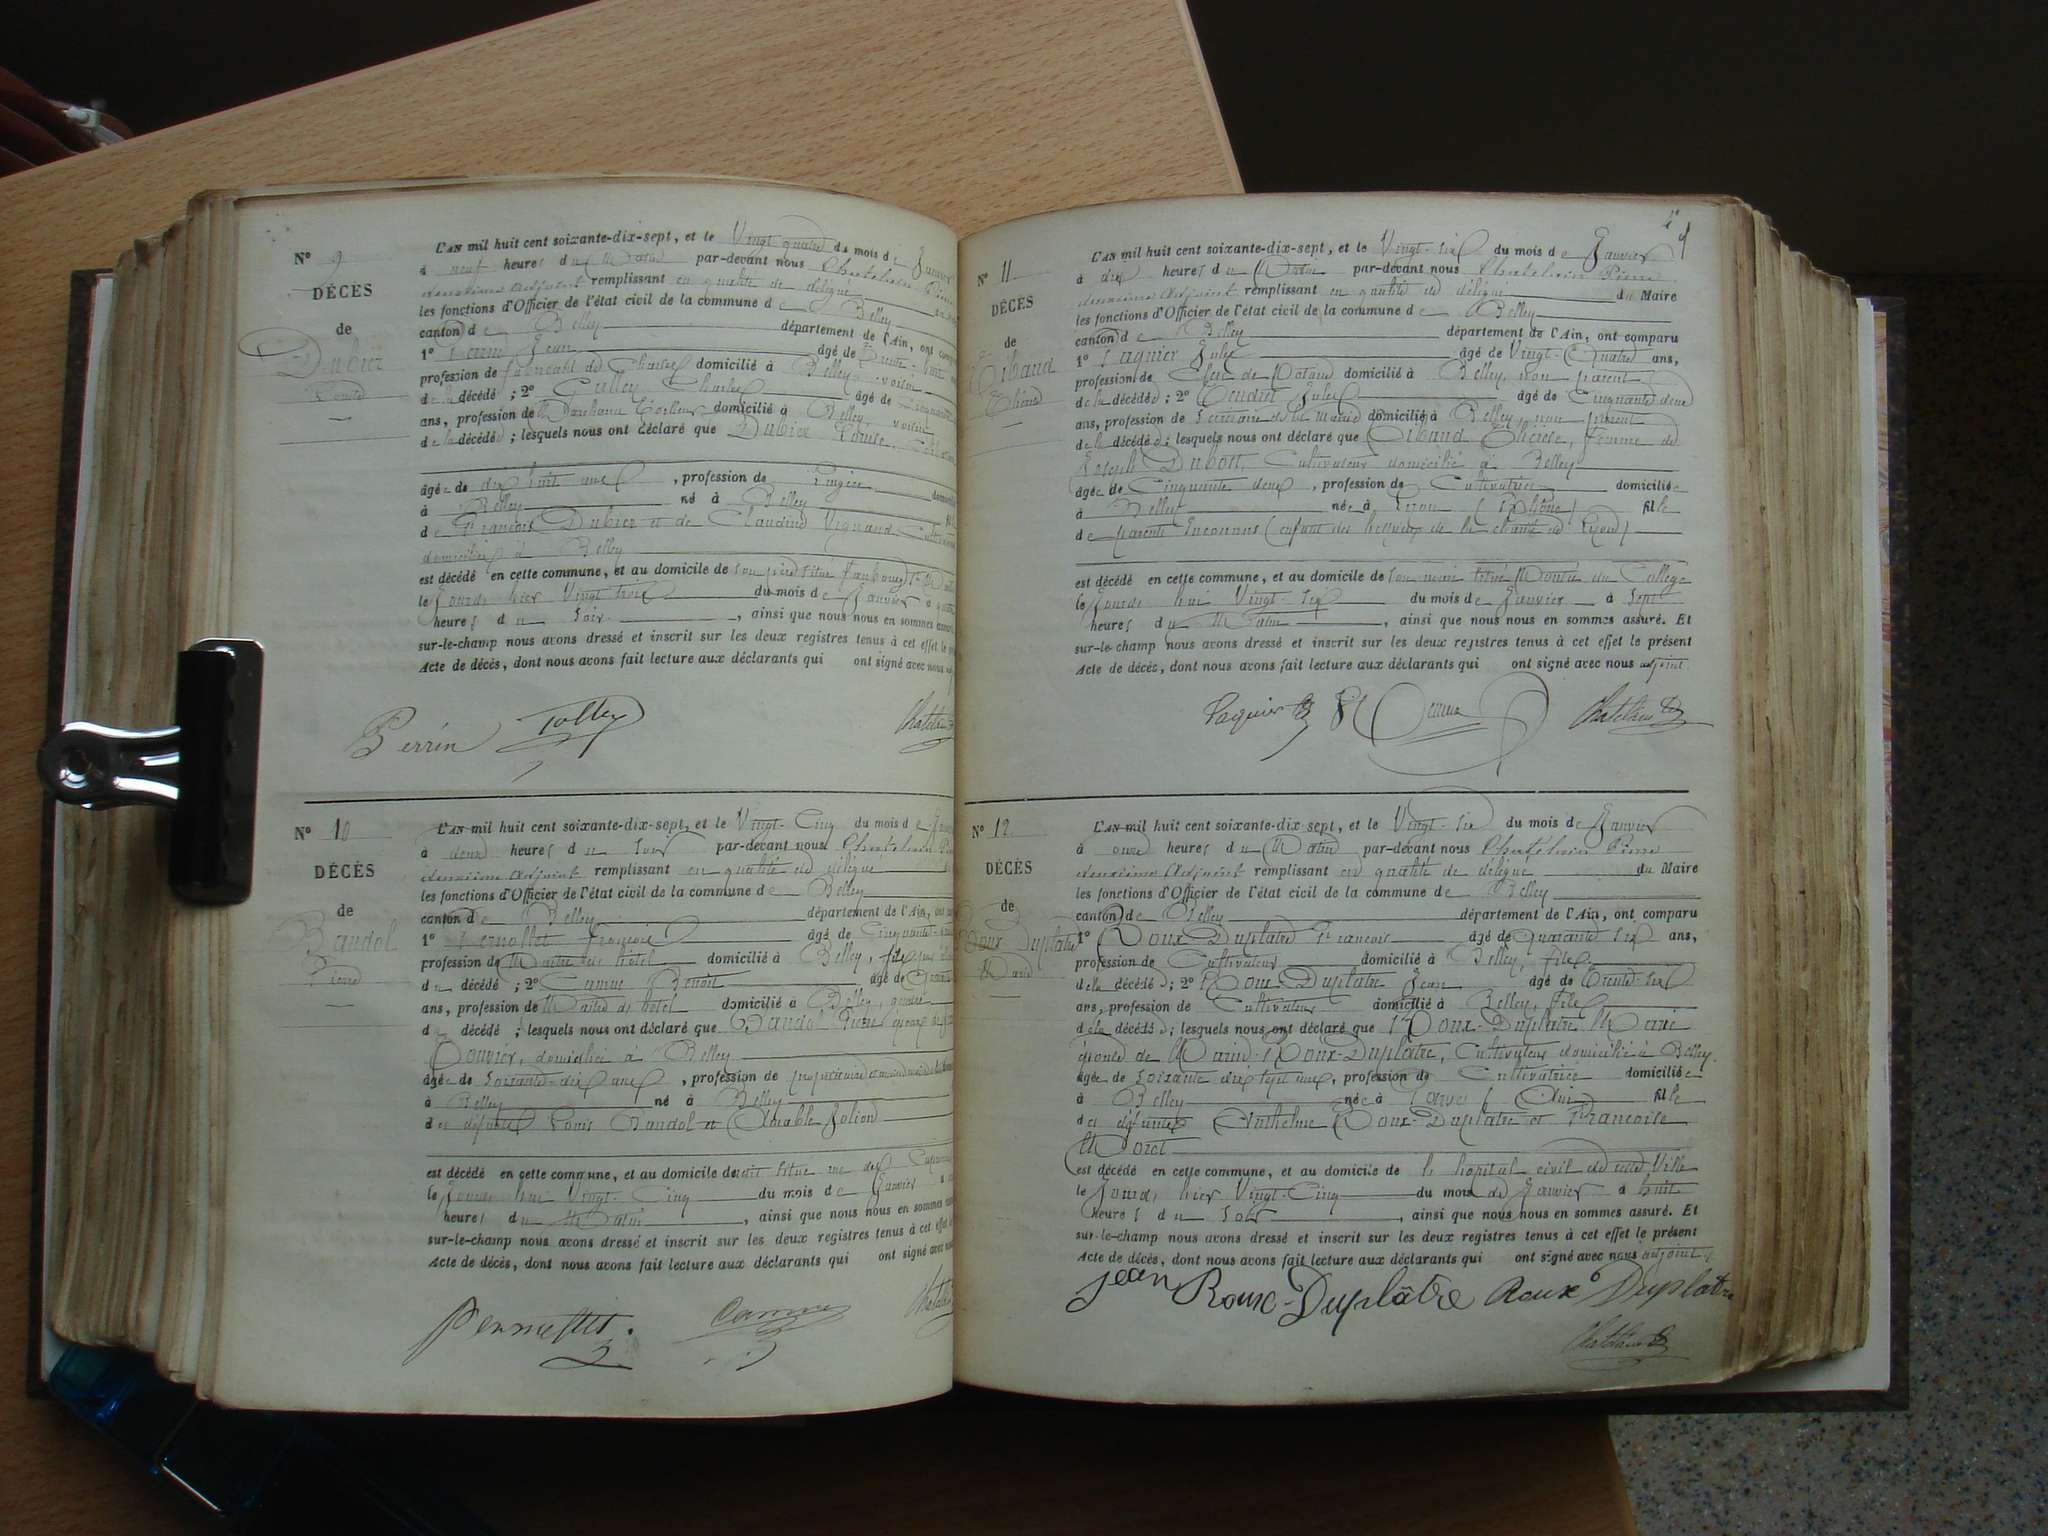 N° 9
DÉCÈS
de
Dubier
Louise
L'AN mil huit cent soixante-dix-sept, et le Vingt quatre du mois de Janvier
à neuf heures du Matin par-devant nous Chatelain Pierre
deuxième Adjoint remplissant en qualité de délégué
les fonctions d'Officier de l'état civil de la commune de Belley
canton de Belley département de l'Ain, ont comparu
1° Perrin Jean âgé de Trente-huit
profession de fabricant de Chaises domicilié à Belley, voisin
de la décédée ; 2° Charles âgé de Cinquante
ans, profession de Marchand Tailleur domicilié à Belley, voisin
de la décédée ; lesquels nous ont déclaré que Dubier Louise,
âgée de dix huit ans , profession de Lingère domiciliée
à Belley né à Belley
de François Dubier et de Claudine Vignand,
domiciliés à Belley
est décédé en cette commune, et au domicile de son père situé faubourg St
le Jour de hier Vingt trois du mois de Janvier à
heures du Soir , ainsi que nous nous en sommes assuré
sur-le-champ nous avons dressé et inscrit sur les deux registres tenus à cet effet le
Acte de décès, dont nous avons fait lecture aux déclarants qui ont signé avec nous
Perrin
Chatelain
N° 10
DÉCÈS
de
Baudol
Pierre
L'AN mil huit cent soixante-dix-sept, et le Vingt-Cinq du mois de Janvier
à deux heures du Soir par-devant nous Chatelain
deuxième Adjoint remplissant en qualité de délégué
les fonctions d'Officier de l'état civil de la commune de Belley
canton de Belley département de l'Ain, ont
1° Pernollet François âgé de Cinquante
profession de Maître d'hôtel domicilié à Belley,
du décédé ; 2° Camus Benoît âgé de
ans, profession de Maître d'hôtel domicilié à Belley, gendre
d décédé ; lesquels nous ont déclaré que Baudol Pierre époux de
Bouvier, domicilié à Belley
âgé de soixante-dix ans , profession de propriétaire
à Belley né à Belley
des défunts Louis Baudol et Aimable Jolion
est décédé en cette commune, et au domicile de situé rue des
le Jour de hui Vingt-Cinq du mois de Janvier
heures du Matin , ainsi que nous nous en sommes
sur-le-champ nous avons dressé et inscrit sur les deux registres tenus à cet effet
Acte de décès, dont nous avons fait lecture aux déclarants qui ont signé avec
Pernollet Camus
N° 11
DÉCÈS
de
L'AN mil huit cent soixante-dix-sept, et le Vingt-six du mois de Janvier
à dix heures du Matin par-devant nous Chatelain Pierre
deuxième Adjoint remplissant en qualité de délégué du Maire
les fonctions d'Officier de l'état civil de la commune de Belley
canton de Belley département de l'Ain, ont comparu
1° Jules âgé de Vingt-Quatre ans,
profession de Clerc de Notaire domicilié à Belley, non parent
de la décédée ; 2° Jules âgé de Cinquante deux
ans, profession de Secrétaire de la Mairie domicilié à Belley, non parent
de la décédée ; lesquels nous ont déclaré que femme de
Joseph Dubost, Cultivateur domicilié à Belley
âgée de Cinquante deux , profession de Cultivatrice domiciliée
à Belley née à Lyon (Rhône) fille
de parents Inconnus (enfant des hospices de la charité de Lyon)
est décédé en cette commune, et au domicile de son mari situé Montée du Collège
le Jour de hui Vingt-six du mois de Janvier à Sept
heures du Matin , ainsi que nous nous en sommes assuré. Et
sur-le-champ nous avons dressé et inscrit sur les deux registres tenus à cet effet le présent
Acte de décès, dont nous avons fait lecture aux déclarants qui ont signé avec nous adjoint.
Chatelain
N° 12
DÉCÈS
de
Roux Duplatre
Marie
L'AN mil huit cent soixante-dix-sept, et le Vingt-six du mois de Janvier
à onze heures du Matin par-devant nous Chatelain Pierre
deuxième Adjoint remplissant en qualité de délégué du Maire
les fonctions d'Officier de l'état civil de la commune de Belley
canton de Belley département de l'Ain, ont comparu
1° Roux-Duplatre François âgé de quarante six ans,
profession de Cultivateur domicilié à Belley, fils
de la décédée ; 2° Roux-Duplatre Jean âgé de Trente-six
ans, profession de Cultivateur domicilié à Belley, fils
de la décédée ; lesquels nous ont déclaré que Roux-Duplatre Marie
épouse de Marin Roux-Duplatre, Cultivateur domicilié à Belley.
âgée de soixante dix sept ans, profession de Cultivatrice domiciliée
à Belley née à (Ain) fille
des défunts Anthelme Roux-Duplatre et Françoise
Moret
est décédé en cette commune, et au domicile de l'hôpital civil de cette Ville
le Jour de hier Vingt-Cinq du mois de Janvier à huit
heures du Soir , ainsi que nous nous en sommes assuré. Et
sur-le-champ nous avons dressé et inscrit sur les deux registres tenus à cet effet le présent
Acte de décès, dont nous avons fait lecture aux déclarants qui ont signé avec nous adjoint.
jean Roux-Duplâtre Roux Duplatre
Chatelain